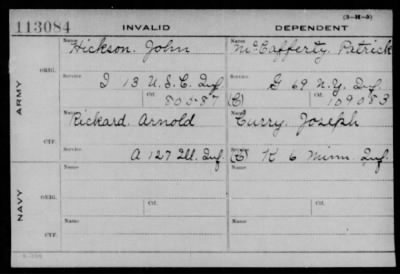 (3-H-5)
113084 INVALID DEPENDENT
Name Hickson, John Name McCafferty, Patrick
ARMY
ORIG.
Service I 13 U.S.C. Inf. Service G 69 N.Y. Inf.
Ctf. 805-87 (C) Ctf. 109083
Name Rickard, Arnold Name Curry, Joseph
CTF.
Service A 127 Ill. Inf. Service (C) K 6 Minn. Inf.
NAVY
Name Name
ORIG.
Service Ctf. Service Ctf.
Name Name
CTF.
Service Service